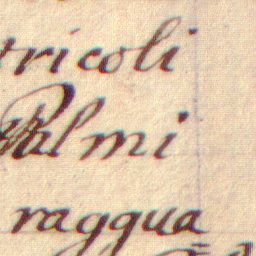 tricoli
Palmi
raggua